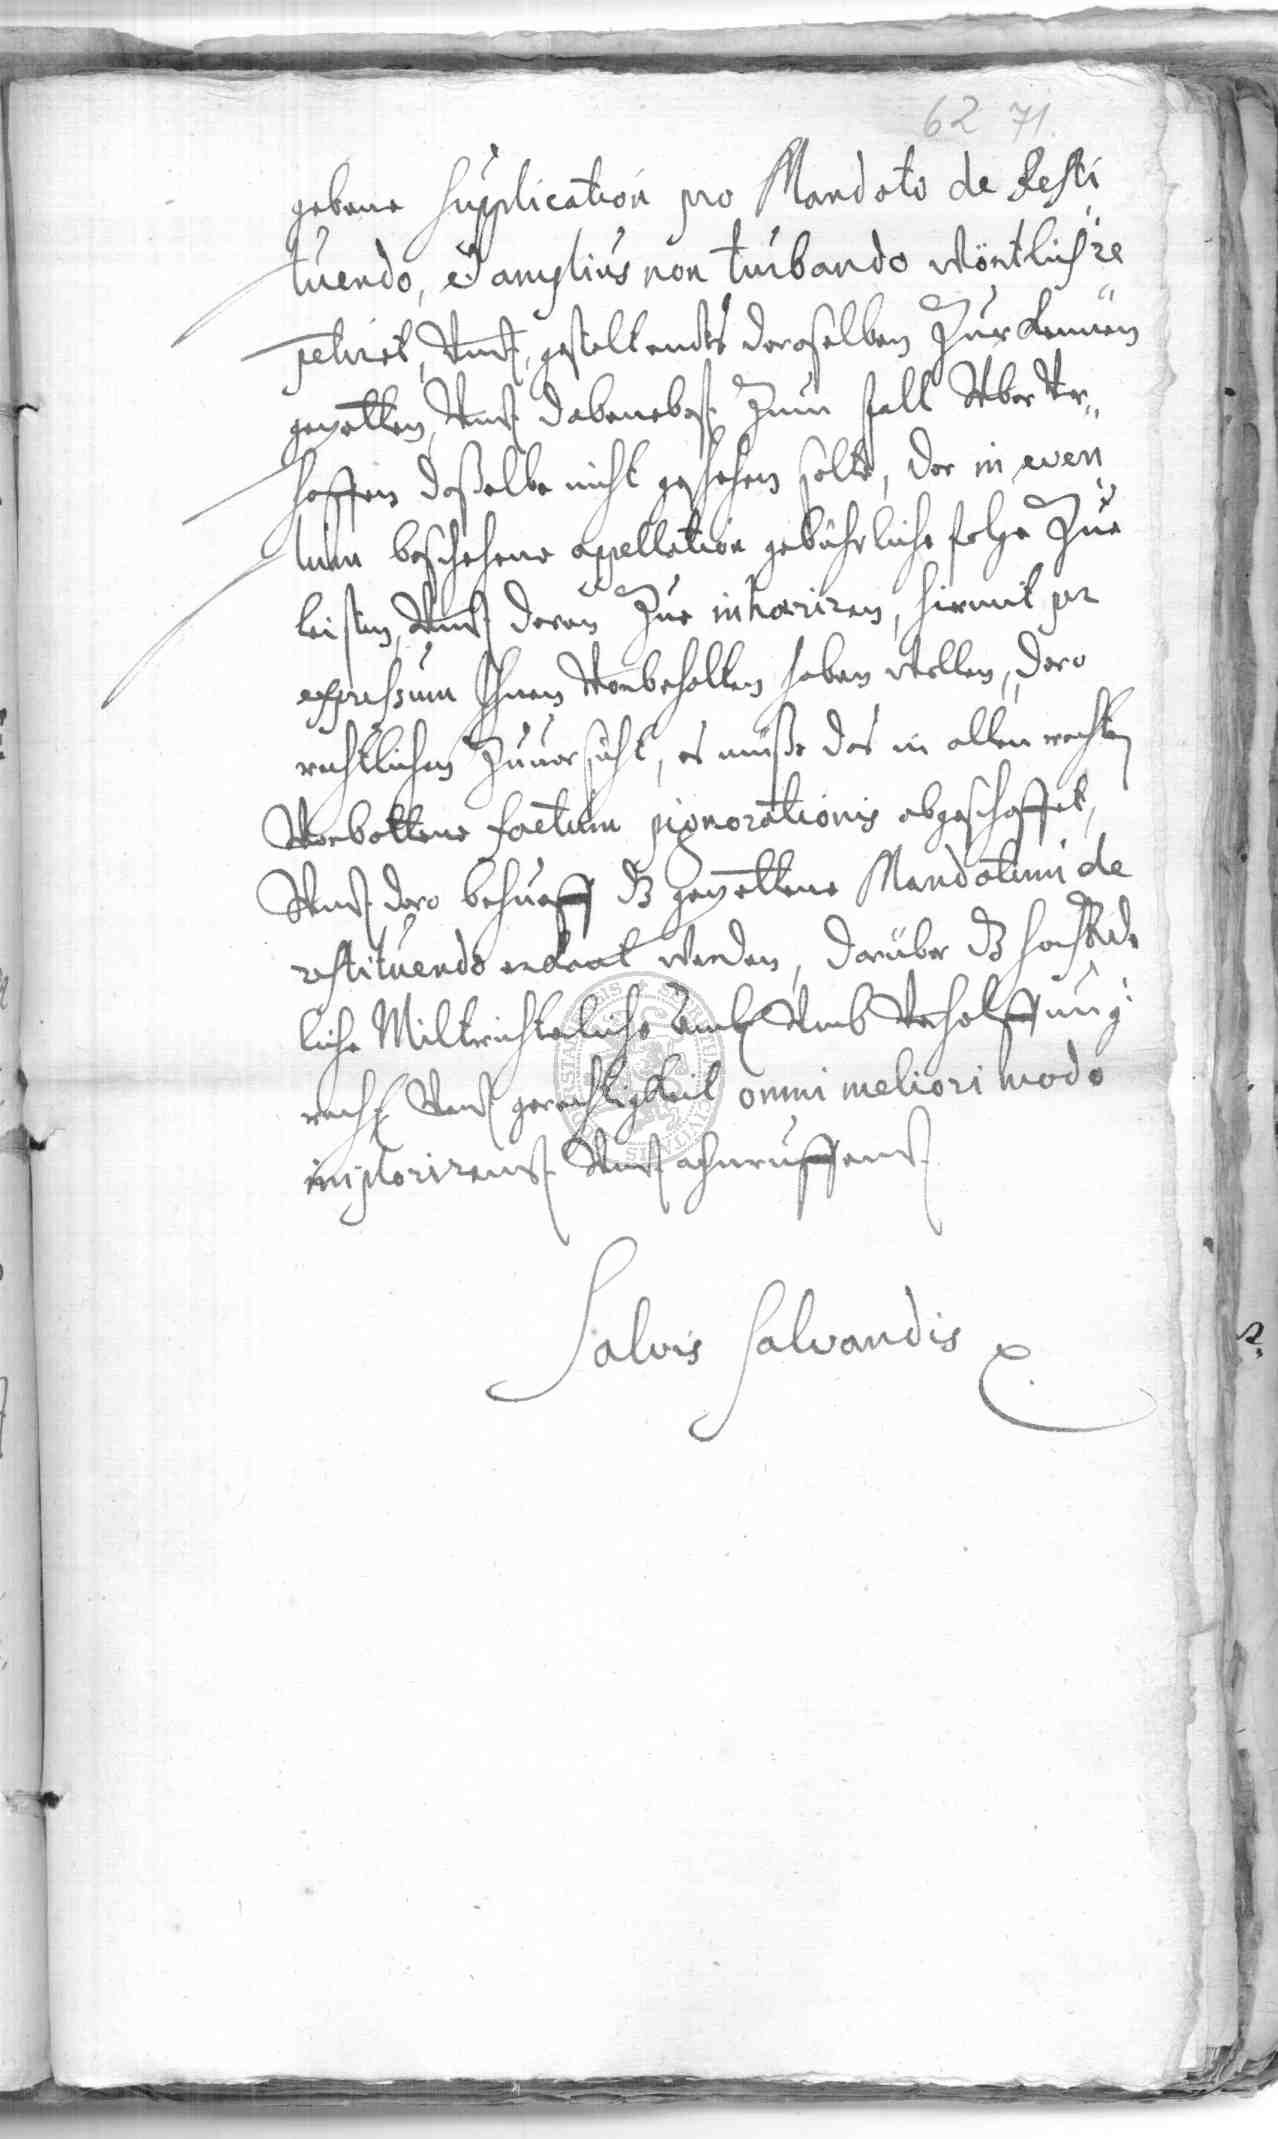 62 71
gebene supplication pro Mandato de Resti
tuendo, et amplius non turbando wörtlich re
petiret, Undt, gestalt  deroselben Zur kennen
gepetten, Undt dabenebest Zum fall Uber Ver„
hoffen daßelbe nicht geschehen solte, der in even
tum beschehene appellation gebührliche folge Zue
leisten, Undt deren Zue inhæriren, hiemit per
expressum Ihnen Vorbehalten haben wollen, dero
rechtlichen Zuuorsicht, es müße das in allen rechten
Vorbottene factum pignorationis abgeschaffet,
Undt dero behueff dz gepettene Mandatum de
restituendo erkant werden, darüber dz hoch Ade
liche Miltrichterliche Ambt Umb Verhelffung
recht Undt gerechtigkeit omni meliori modo
implorirendt Undt ahnruffendt
Salvis Salvandis